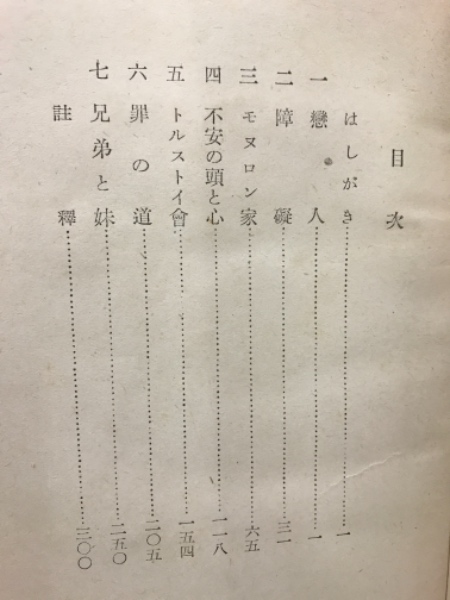 目次
はしがき……一
一 戀人……一
二 障礙……三一
三 モヌロン家……六五
四 不安の頭と心……一一八
五 トルストイ會……一五四
六 罪の道……二〇五
七 兄弟と妹……二五〇
註釋……三〇〇